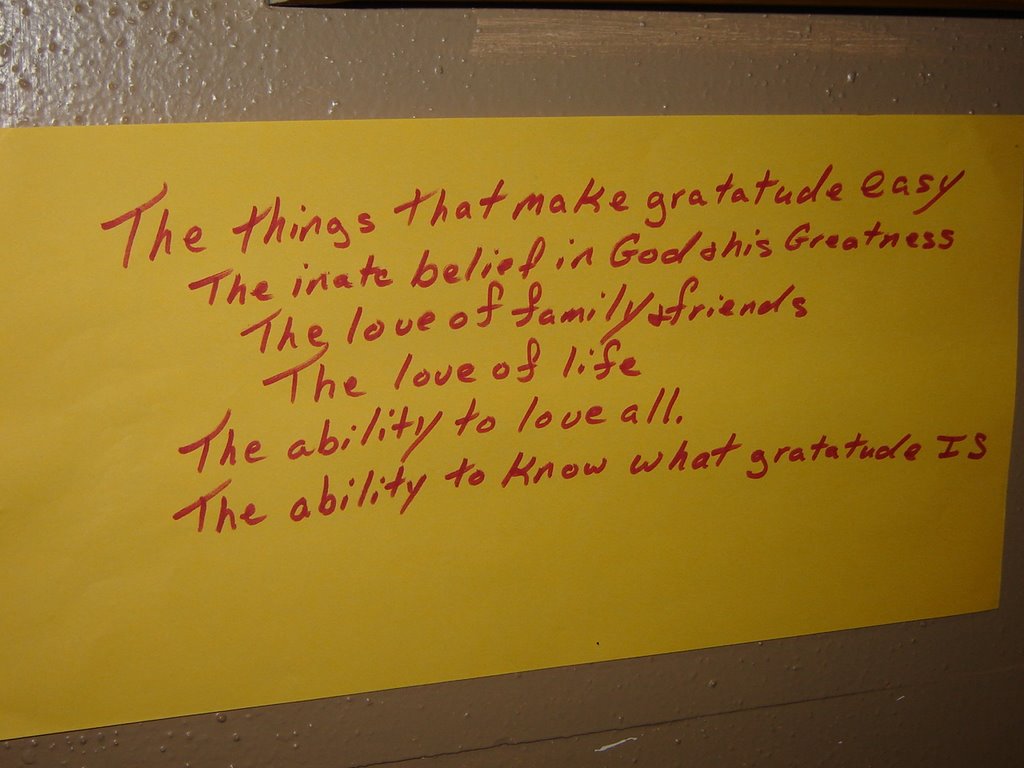 The things that make gratatude easy
The inate belief in God & his Greatness
The love of family & friends
The love of life
The ability to love all.
The ability to know what gratatude IS